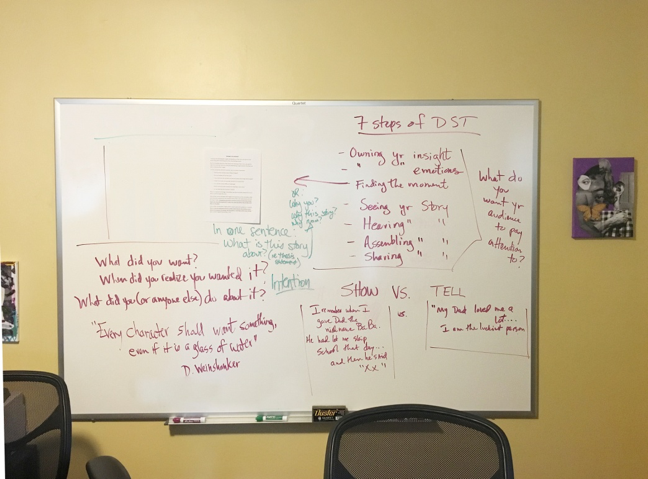 7 steps of DST
- Owning yr insight
- " " emotions
- Finding the moment
- Seeing yr Story
- Hearing " "
- Assembling " "
- Sharing " "
What do
you
want yr
audience
to pay
attention
to?
OR
Why you?
Why this story?
Why now?
In one sentence:
what is this story
about?
Intention
What did you want?
When did you realize you wanted it?
What did you (or anyone else) do about it?
"Every Character shall want something,
even if it is a glass of water"
SHOW VS. TELL
I remember when I
gave Dad the
He had let me skip
school that day...
and then he said
"XX"
vs.
"My Dad loved me a
lot...
I am the luckiest person